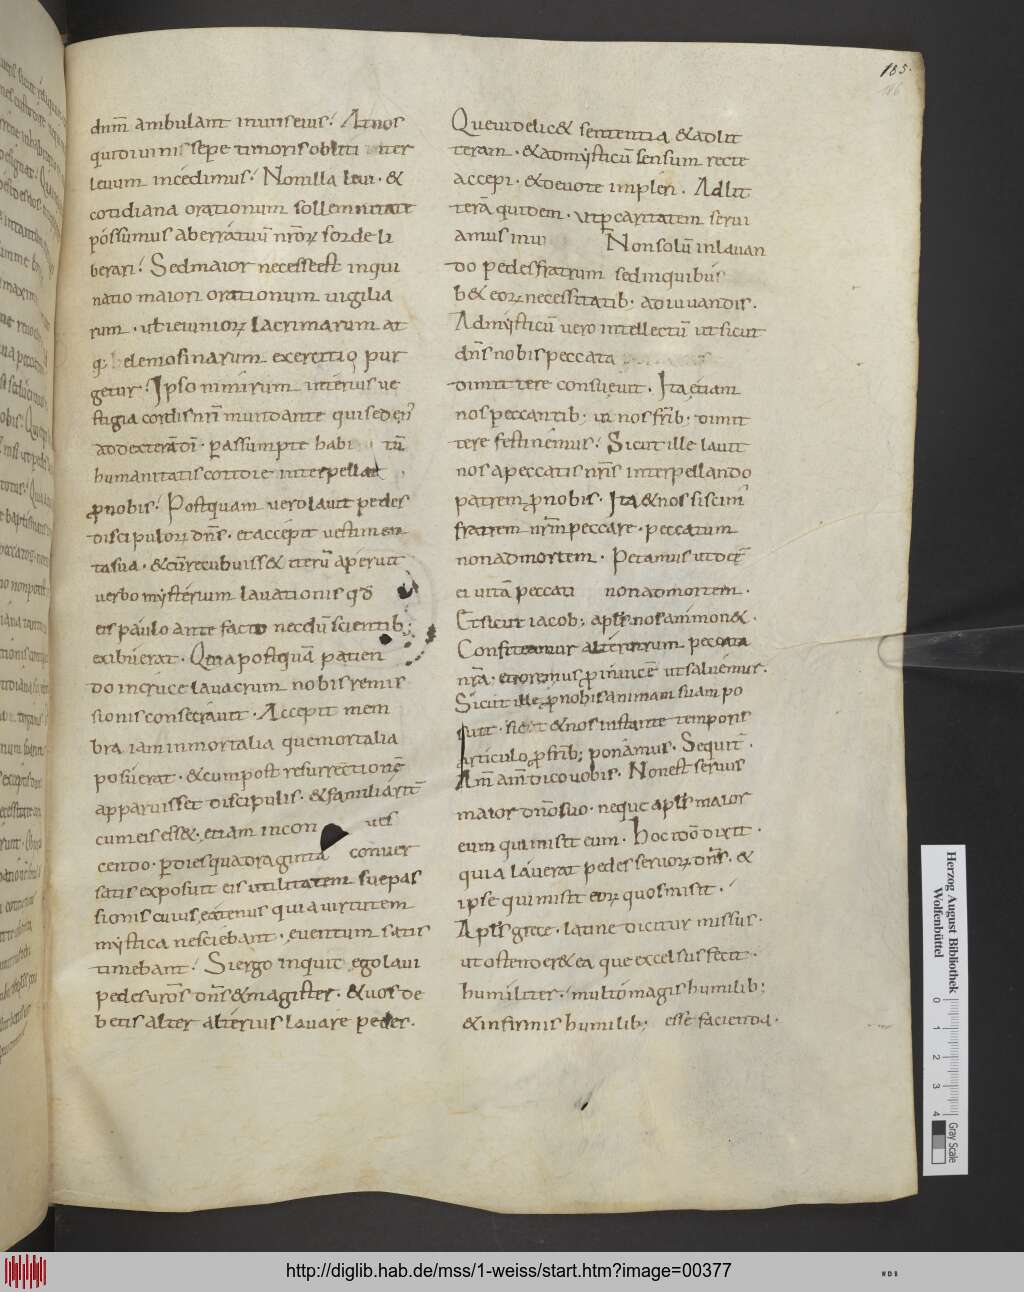 185.
186
dn̄m ambulant in universis. At nos
qui divinis sepe timoris obliti iter
levum incedimus. Non illa levi. &
cotidiana orationum sollemnitate
possumus a berratuū nr̄oꝝ sorde li
berari. Sed maior necesse est in qui
natio maiori orationum vigilia
rum. ut ieiunioꝝ lacrimarum at
q; helemosinarum exercitio pur
getur. Ipso nimirum interius ve
stigia cordis nr̄i mundante qui sedens
ad dexterā dī. p assumpte habitū
humanitatis cottidie interpellat
pro nobis. Postquam vero lavit pedes
discipuloꝝ dn̄s. et accepit vestimen
ta sua. & cū recubuiss& iterū aperuit
verbo mysterium lavationis qd̄
eis paulo ante facto necdū scientib;
exibuerat. Quia postquā patien
do in cruce lavacrum nobis remis
sionis consecravit. Accepit mem
bra iam inmortalia que mortalia
posuerat. & cum post resurrectionē
apparuisset discipulis. & familiarit̄
cum eis ess&. etiam in con ves
cendo. p dies quadraginta conver
satis exposuit eis utilitatem sue pas
sionis cuius eatenus quia virtutem
mystica nesciebant. eventum satis
timebant. Si ergo inquit ego lavi
pedes vr̄os dn̄s & magister. & vos de
betis alter alterius lavare pedes.
Que videlic& sententia & ad lit
teram. & ad mysticū sensum recte
accepi. & devote impleri. Ad lit
terā quidem. ut p caritatem servi
amus invi Non solū in lavan
do pedes fratrum sed in quibus
b& eoꝝ necessitatib; adiuvandis.
Ad mysticū vero intellectū ut sicut
dn̄s nobis peccata
dimittere consuevit. Ita etiam
nos peccantib; in nos fr̄ib; dimit
tere festinemus. Sicut ille lavit
nos a peccatis nr̄is interpellando
patrem pro nobis. Ita & nos si scim'
fratrem nr̄m peccare. peccatum
non ad mortem. Petamus ut det̄
ei vitā peccati non ad mortem.
Et sicut iacob; apl̄s nos ammon&.
Confiteamur alterutrum peccata
nr̄a. et oremus pro invicē ut salvemur.
Sicut ille pro nobis animam suam po
suit. sic & nos instante temporis
articulo pro fr̄ib; ponamus. Sequit̄.
Am̄ am̄ dico vobis. Non est servus
maior dn̄o suo. neque apl̄s maior
eum qui misit eum. Hoc ideo dixit.
quia laverat pedes servoꝝ dn̄s. &
ipse qui misit eoꝝ quos misit.
Apl̄s grece. latine dicitur missus.
ut ostender& ea que excelsus fecit.
humiliter. multo magis humilib;
& infirmis humilib; esse facienda.
Herzog August Bibliothek
Wolfenbüttel
0 1 2 3 4
Gray Scale
http://diglib.hab.de/mss/1-weiss/start.htm?image=00377